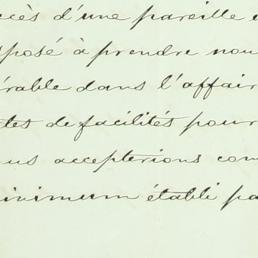 ccès d'une pareille
sposé à prendre nou
érable dans l'affair
tes de facilités pour
ous accepterions com
inimum établi pa